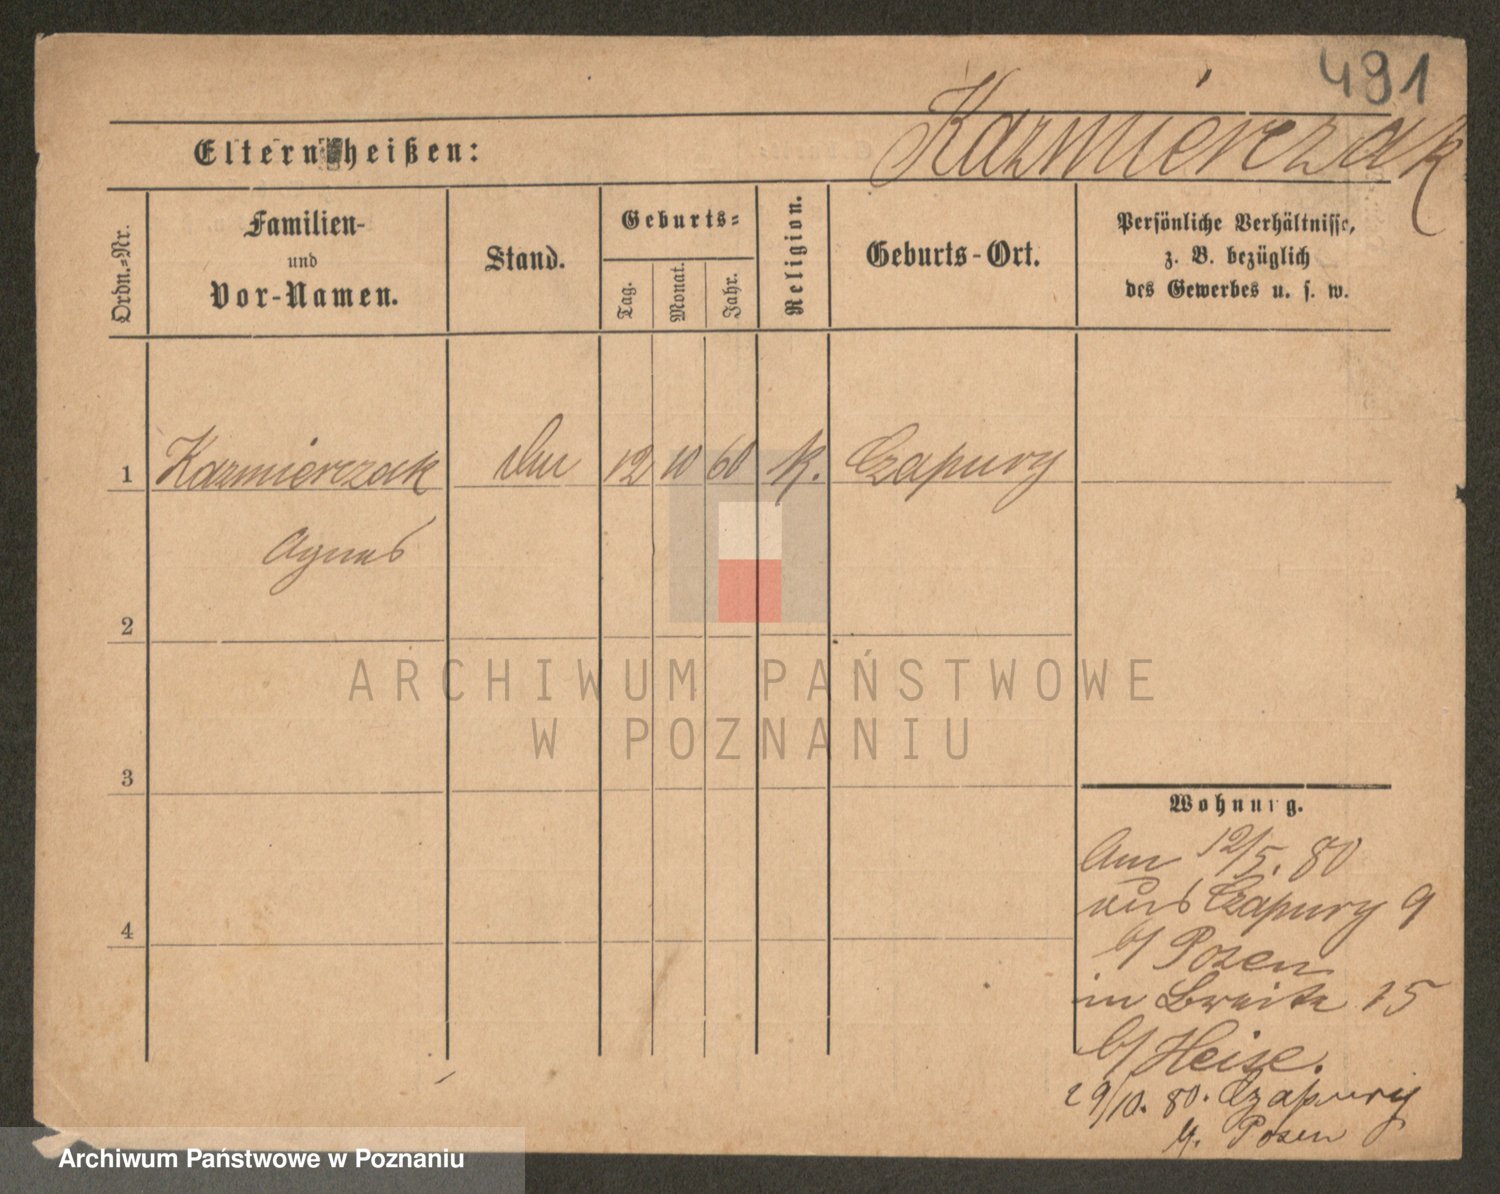 491
Kazmierczak
Eltern heißen:
Ordn.-Nr.
Familien-
und
Vor-Namen.
Stand.
Geburts-
Tag.
Monat.
Jahr.
Religion.
Geburts-Ort.
Persönliche Verhältnisse,
z. B. bezüglich
des Gewerbes u. s. w.
1 Kazmierczak 12 10 60 k. Czapury
Agnes
2
ARCHIWUM PAŃSTWOWE
W POZNANIU
3
Wohnung.
Am 12/5. 80
aus Czapury 9
b/ Posen
in Breite 15
b/ Heise.
4
29/10. 80. Czapury
Posen
Archiwum Państwowe w Poznaniu